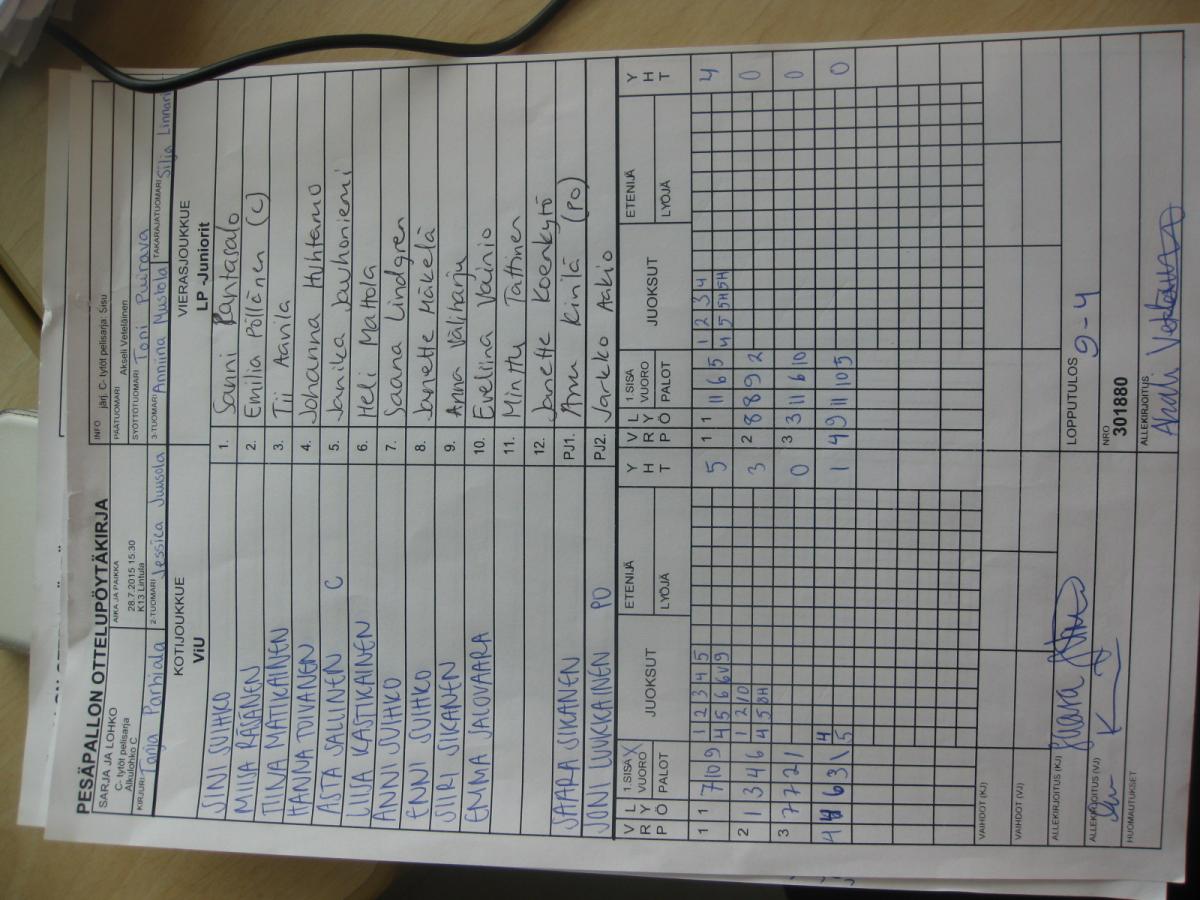 PESÄPALLON OTTELUPÖYTÄKIRJA
SARJA JA LOHKO
C- tytöt pelisarja
Alkulohko C
AIKA JA PAIKKA
28.7.2015 15:30
K13 Lintula
INFO järj. C- tytöt pelisarja: Sisu
PÄÄTUOMARI Akseli Veteläinen
SYÖTTÖTUOMARI Toni Puirava
KIRJURI Tanja Parhiala
2-TUOMARI Jessica Juusola
3-TUOMARI Anniina Mustola
TAKARAJATUOMARI Silja Linnari
KOTIJOUKKUE
ViU
VIERASJOUKKUE
LP -Juniorit
SINI SUIHKO 1. Sanni Rantasalo
MIISA RÄSÄNEN 2. Emilia Pöllänen (C)
TIINA MATIKAINEN 3. Tii Aavila
HANNA TOIVANEN 4. Johanna Huhtamo
ASTA SALLINEN C 5. Janika Jauhoniemi
ULLA KASTIKAINEN 6. Heli Mattola
ANNI SUIHKO 7. Saana Lindgren
ENNI SUIHKO 8. Janette Mäkelä
SIIRI SIKANEN 9. Anna Väliharju
EMMA SALOVAARA 10. Eveliina Vainio
11. Minttu Tattinen
12. Janette Koenkytö
SAARA SIKANEN PJ1. Anna Kinilä (PO)
JONI LUUKKAINEN PO PJ2. Jarkko Aakio
VRP LYÖ 1.SISA VUORO X PALOT JUOKSUT ETENIJÄ LYÖJÄ YHT
VRP LYÖ 1.SISA VUORO PALOT JUOKSUT ETENIJÄ LYÖJÄ YHT
1 1 7 10 9 1 2 3 4 5 5 1 1 11 6 5 1 2 3 4 4
4 5 6 6V 9 4 5 5H 5H
2 1 3 4 6 1 2 10 3 2 8 8 9 2 0
4 5 8H
3 7 7 2 1 0 3 3 11 6 10 0
4 6 3 1 4 1 4 9 11 10 5 0
5
VAIHDOT (KJ)
VAIHDOT (VJ)
ALLEKIRJOITUS (KJ)
ALLEKIRJOITUS (VJ)
HUOMAUTUKSET
LOPPUTULOS 9-4
NRO
301880
ALLEKIRJOITUS